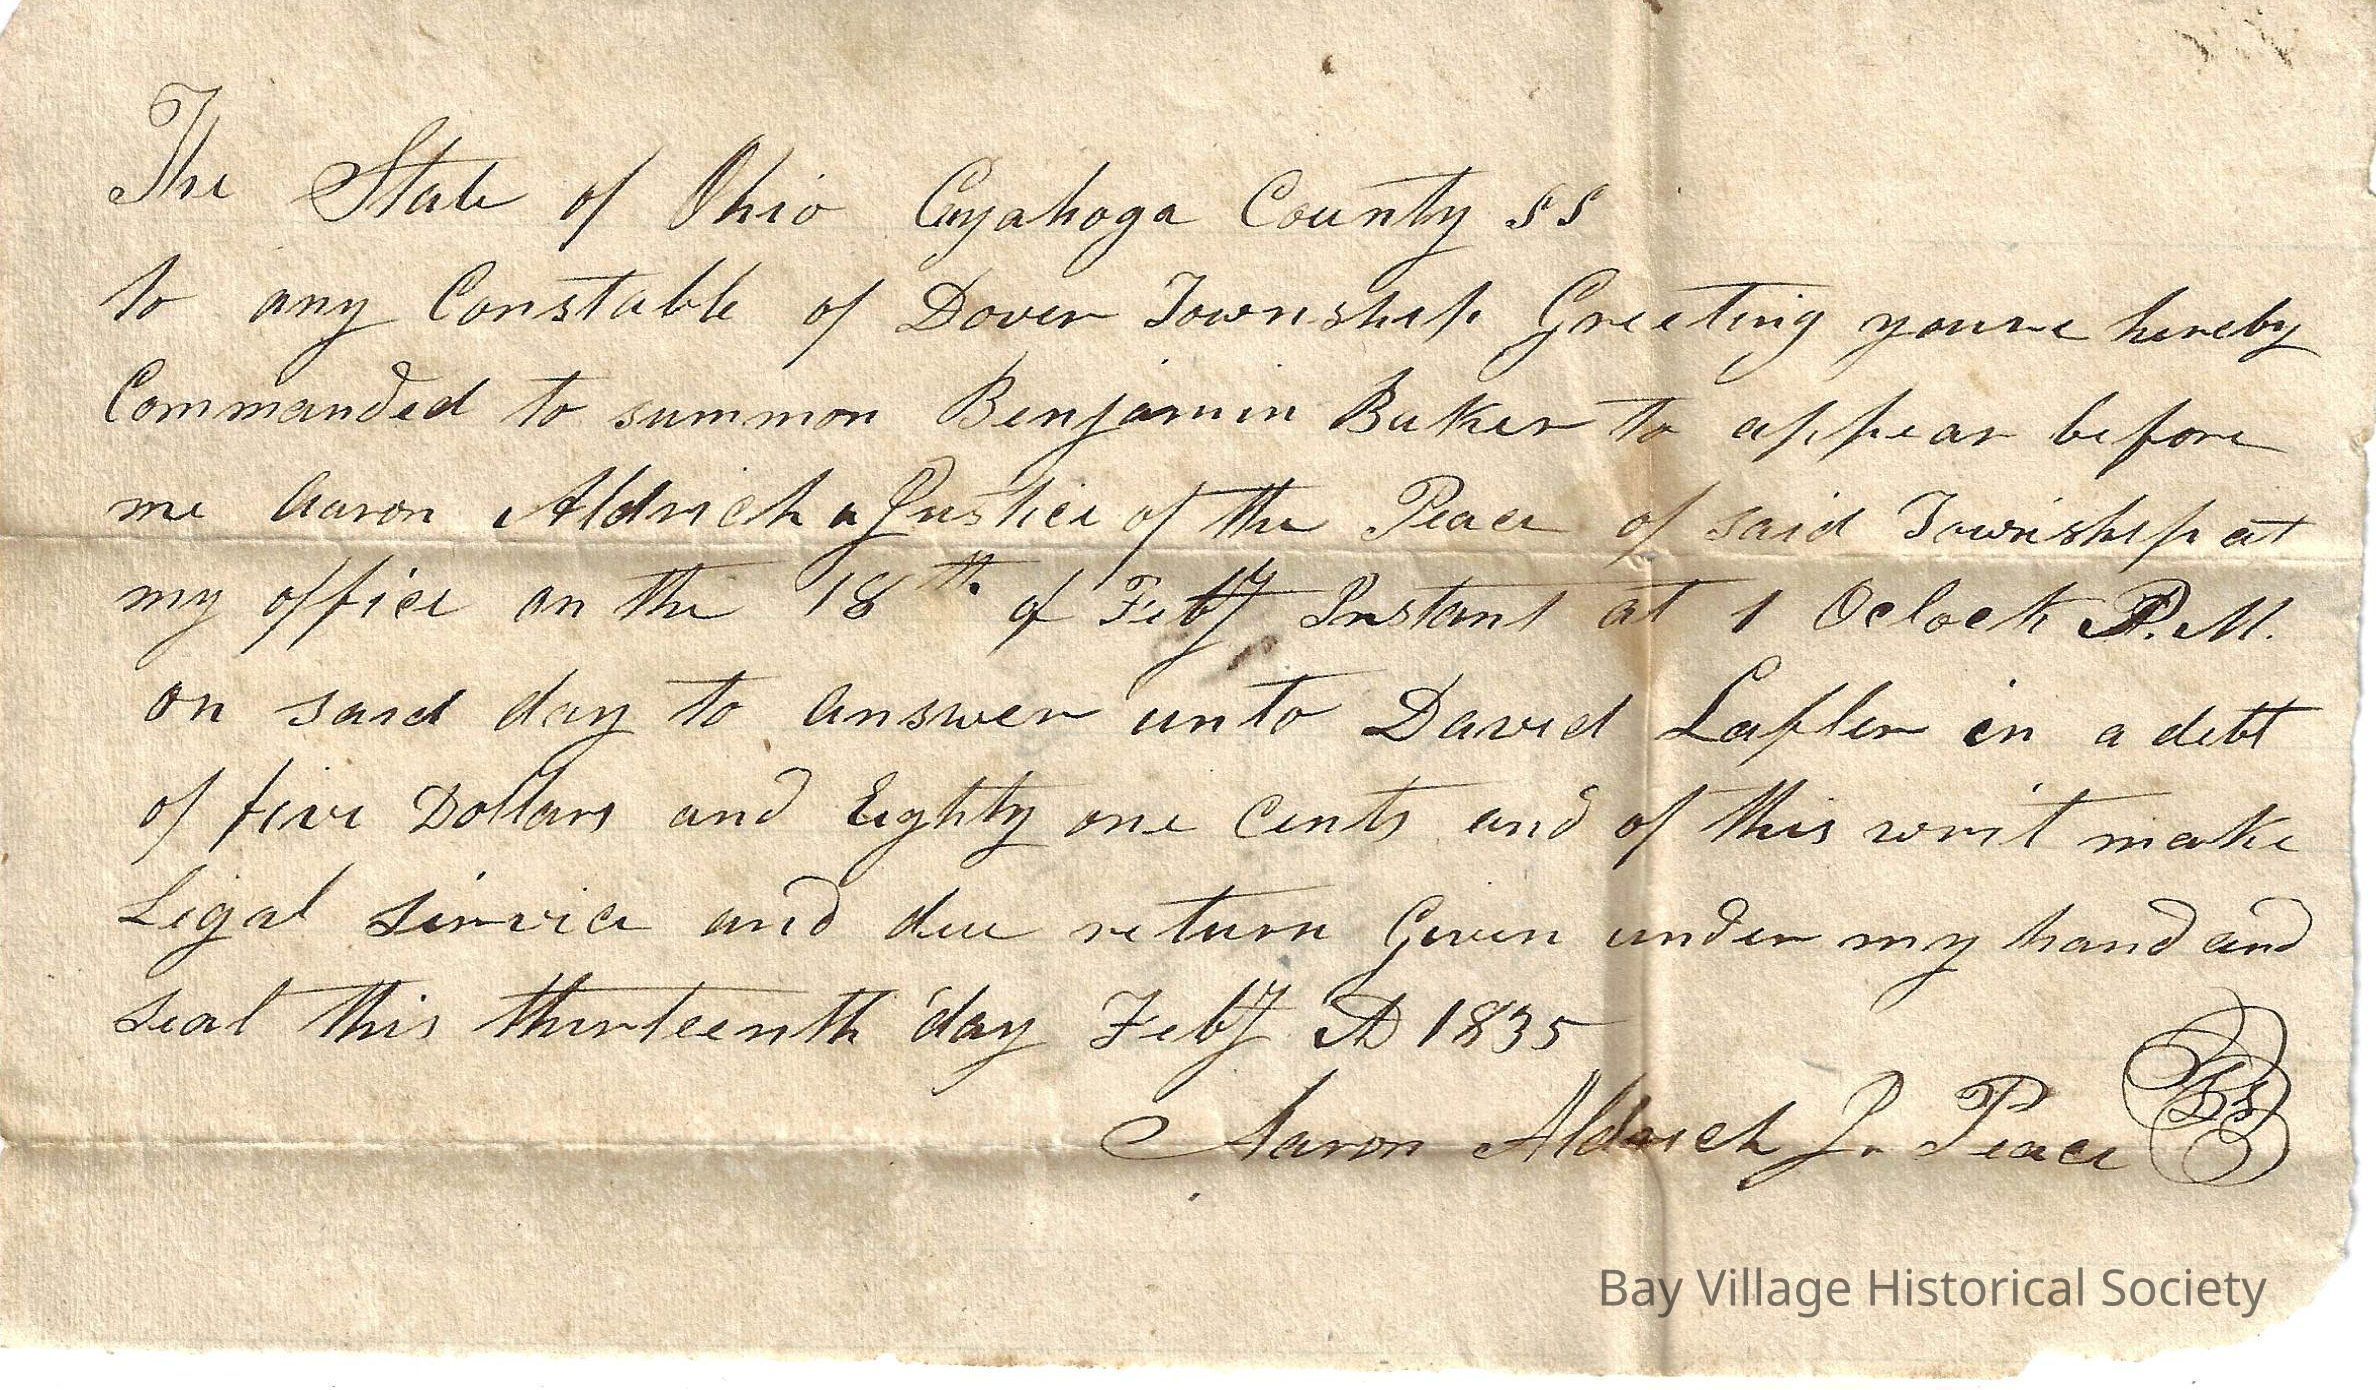 The State of Ohio Cuyahoga County SS
to any Constable of Dover Township Greeting you are hereby
Commanded to summon Benjamin Baker to appear before
me Aaron Aldrich a Justice of the Peace of said Township at
my office on the 18th of Feby Instant at 1 Oclock P.M.
on said day to answer unto David Lafler in a debt
of five Dollars and Eighty one Cents and of this writ make
Legal service and due return Given under my hand and
seal this thirteenth day Feby AD 1835
Aaron Aldrich Js Peace LS
Bay Village Historical Society